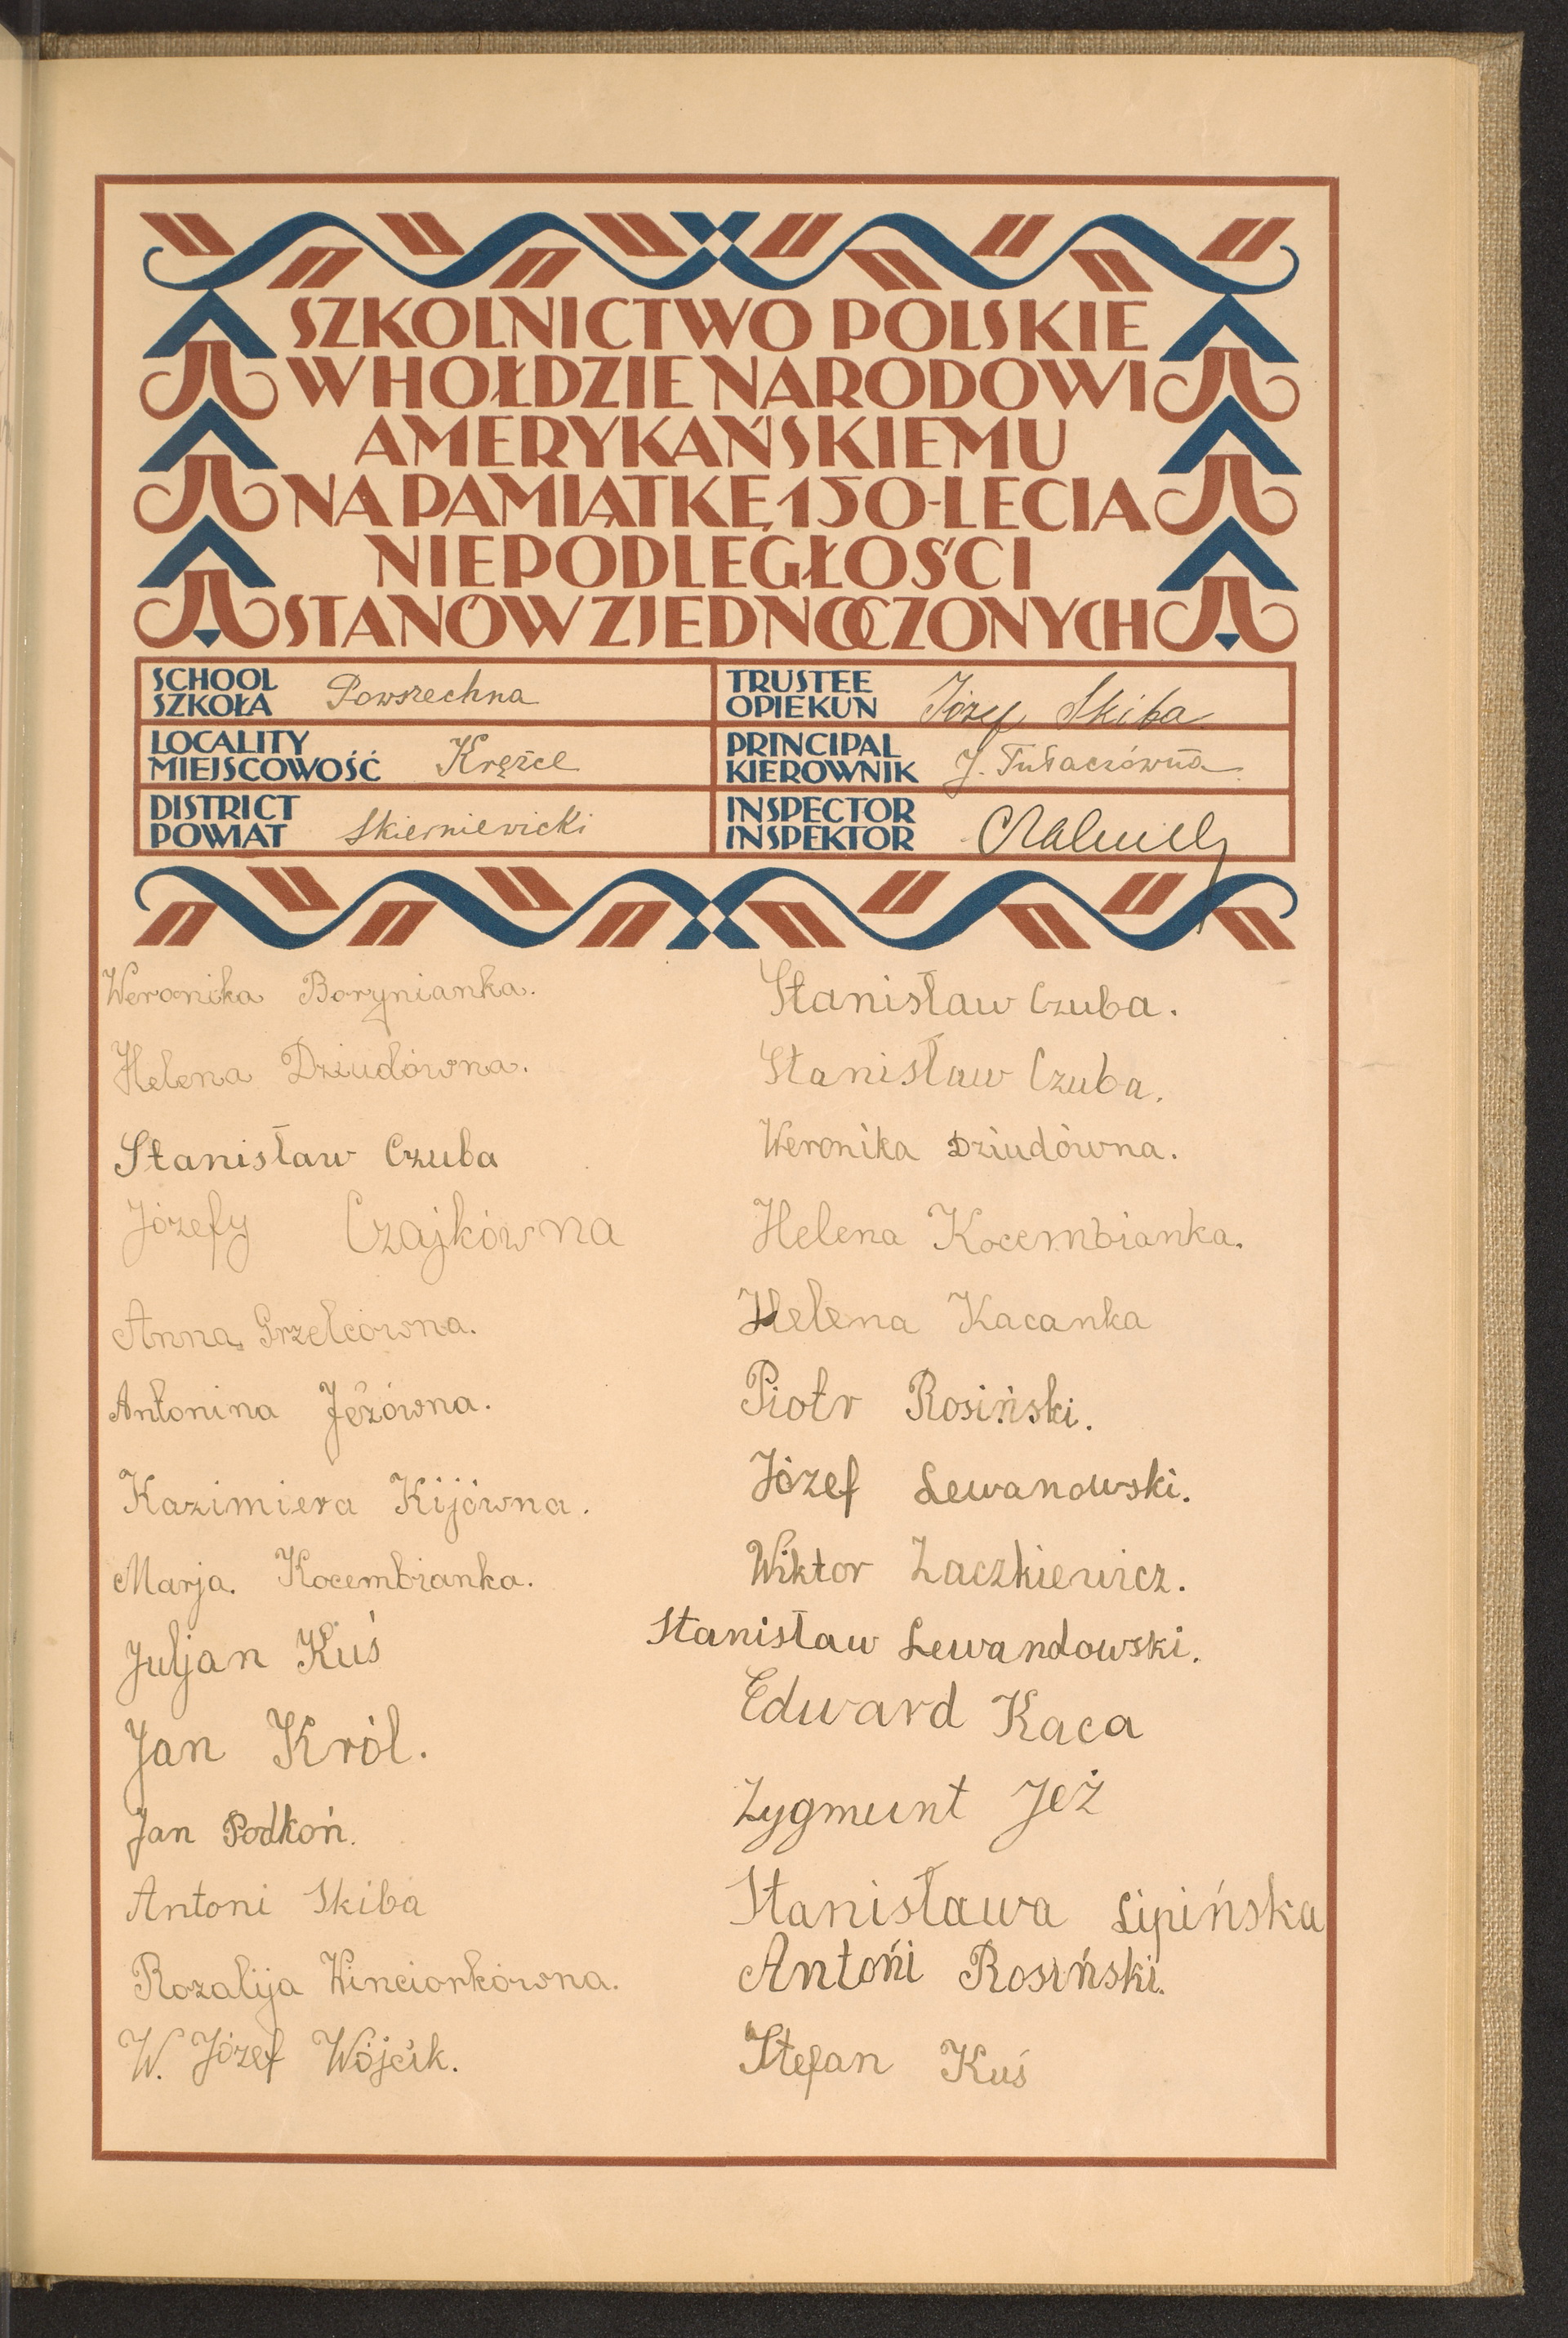 SZKOLNICTWO POLSKIE
W HOŁDZIE NARODOWI
AMERYKAŃSKIEMU
NA PAMIĄTKĘ 150-LECIA
NIEPODLEGŁOŚCI
STANÓW ZJEDNOCZONYCH
SCHOOL
SZKOŁA Powszechna
LOCALITY
MIEJSCOWOŚĆ Krężce
DISTRICT
POWIAT Skierniewicki
TRUSTEE
OPIEKUN Józef Skiba
PRINCIPAL
KIEROWNIK J. Tułaczówna
INSPECTOR
INSPEKTOR
Weronika Borynianka.
Helena Dziudówna.
Stanisław Czuba
Józefy Czajkówna
Anna Grzelcówna.
Antonina Jeżówna.
Kazimiera Kijówna.
Marja. Kocembianka.
Juljan Kuś
Jan Król.
Jan Podkoń.
Antoni Skiba
Rozalija Winciorkówna.
W. Józef Wójcik.
Stanisław Czuba.
Stanisław Czuba.
Weronika Dziudówna.
Helena Kocembianka.
Helena Kacanka
Piotr Rosiński.
Józef Lewanowski.
Wiktor Zaczkiewicz.
Stanisław Lewandowski.
Edward Kaca
Zygmunt Jeż
Stanisława Lipińska
Antońi Rosiński.
Stefan Kuś